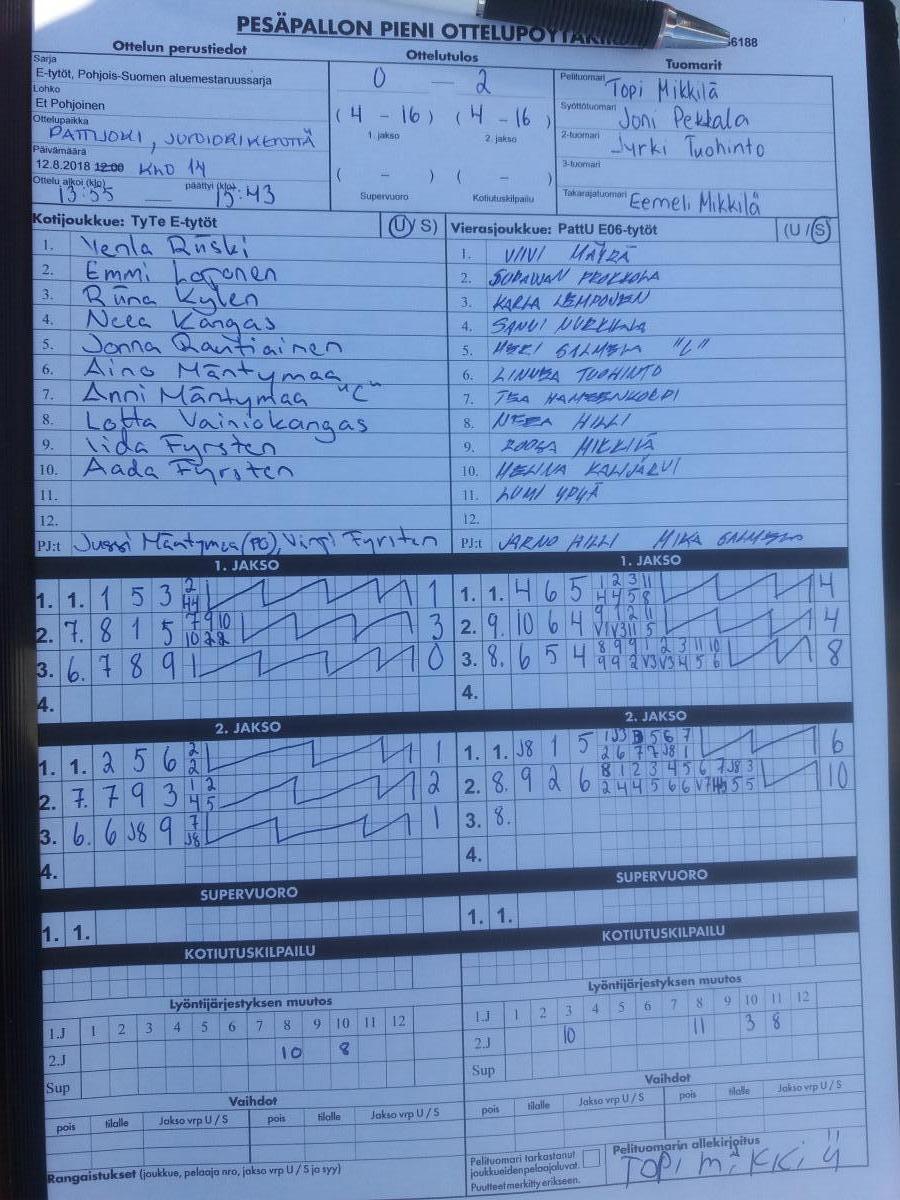 PESÄPALLON PIENI OTTELUPÖYTÄKIR
6188
Ottelun perustiedot
Ottelutulos
Tuomarit
Sarja
E-tytöt, Pohjois-Suomen aluemestaruussarja
Lohko
Et Pohjoinen
Ottelupaikka
PATTIJOKI,
Päivämäärä
12.8.2018 12:00 KLO 14
Ottelu alkoi (klo) päättyi (klo)
13:55 — 15:43
0 — 2
(4 - 16) (4 - 16)
1. jakso 2. jakso
( - ) ( - )
Supervuoro Kotiutuskilpailu
Pelituomari Topi Mikkilä
Syöttötuomari Joni Pekkala
2-tuomari Jyrki Tuohinto
3-tuomari
Takarajatuomari Eemeli Mikkilä
Kotijoukkue: TyTe E-tytöt (U/S)
1. Venla Riiski
2. Emmi Loronen
3. Riina Kylen
4. Neea Kangas
5. Jonna Rantiainen
6. Aino Mäntymaa
7. Anni Mäntymaa "C"
8. Lotta Vainiokangas
9. Iida Fyrsten
10. Aada Fyrsten
11.
12.
PJ:t Jussi Mäntymaa (PO), Virpi Fyrsten
Vierasjoukkue: PattU E06-tytöt (U/S)
1. VIIVI MÄYRÄ
2. PROKKOLA
3. KARLA LEMPONEN
4. SANNI NURKKALA
5. SALMELA "C"
6. LINNEA TUOHINTO
7. TEA HAMEENKORPI
8. NEEA HILLI
9. ROOSA MIKKILÄ
10. HELINA KALIJÄRVI
11. LUMI YPYÄ
12.
PJ:t JARNO HILLI MIKA SALMELA
1. JAKSO
1. 1. 1 5 3 2 44 1
2. 7. 8 1 5 7 9 10 10 2 2 3
3. 6. 7 8 9 1 0
4.
1. JAKSO
1. 1. 4 6 5 1 2 3 11 4 4 5 8 4
2. 9. 10 6 4 4
3. 8. 6 5 4 8 9 9 1 2 3 11 10 9 9 2 V3 V3 4 5 6 8
4.
2. JAKSO
1. 1. 2 5 6 2 2 1
2. 7. 7 9 3 1 2 4 5 2
3. 6. 6 J8 9 7 J8 1
4.
2. JAKSO
1. 1. J8 1 5 6
2. 8. 9 2 6 8 1 2 3 4 5 6 7 J8 3 10
3. 8.
4.
SUPERVUORO
1. 1.
SUPERVUORO
1. 1.
KOTIUTUSKILPAILU
KOTIUTUSKILPAILU
Lyöntijärjestyksen muutos
1.J 1 2 3 4 5 6 7 8 9 10 11 12
2.J 10 8
Sup
Lyöntijärjestyksen muutos
1.J 1 2 3 4 5 6 7 8 9 10 11 12
2.J 10 11 3 8
Sup
Vaihdot
pois tilalle Jakso vrp U / S pois tilalle Jakso vrp U / S
Vaihdot
pois tilalle Jakso vrp U / S pois tilalle Jakso vrp U / S
Rangaistukset (joukkue, pelaaja nro, jakso vrp U / S ja syy)
Pelituomari tarkastanut
joukkueidenpelaajaluvat.
Puutteet merkitty erikseen.
Pelituomarin allekirjoitus
Topi Mikkilä